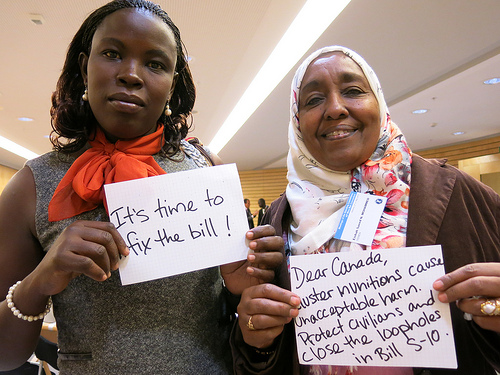 It's time to
fix the bill!
Dear Canada,
luster munitions cause
unacceptable harm.
Protect civilians and
close the loopholes
in Bill S-10.